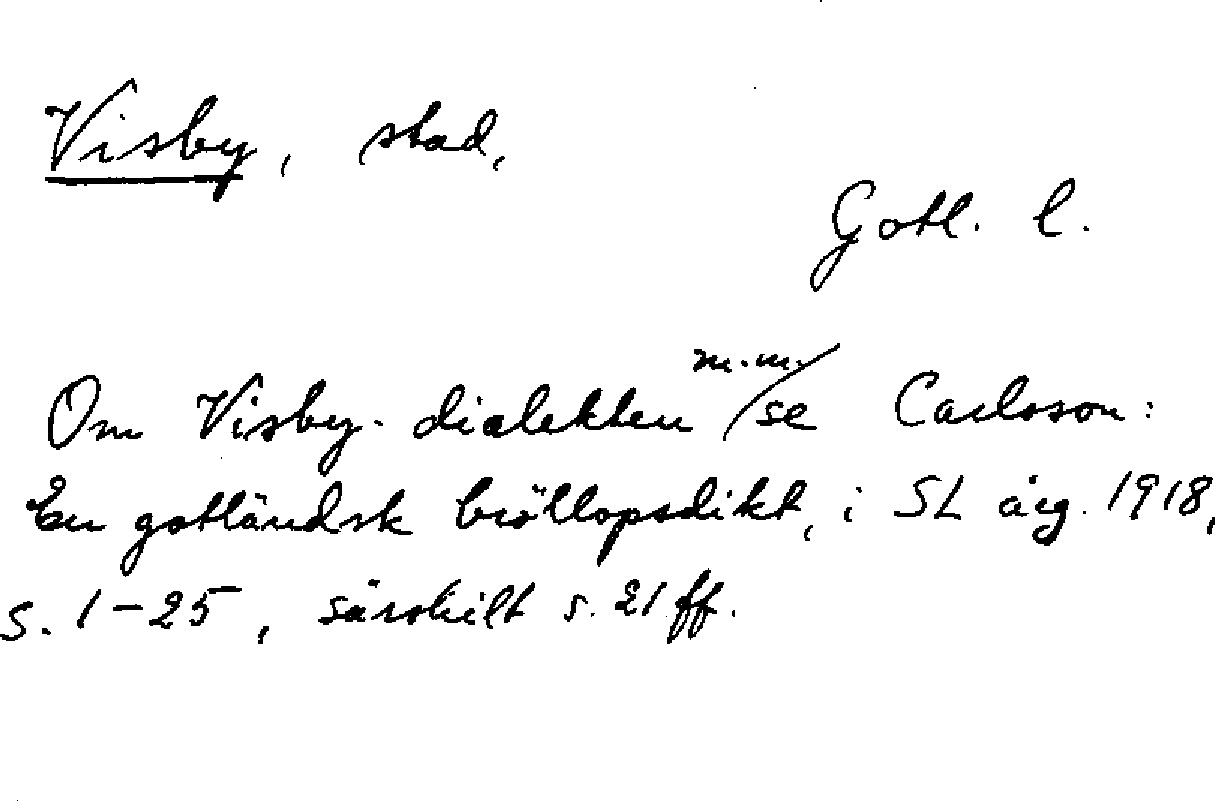 Visby, stad,
Gotl. l.
Om Visby-dialekten m.m. se Carlsson:
En gotländsk bröllopsdikt, i SL årg. 1918,
s. 1-25, särskilt s. 21 ff.